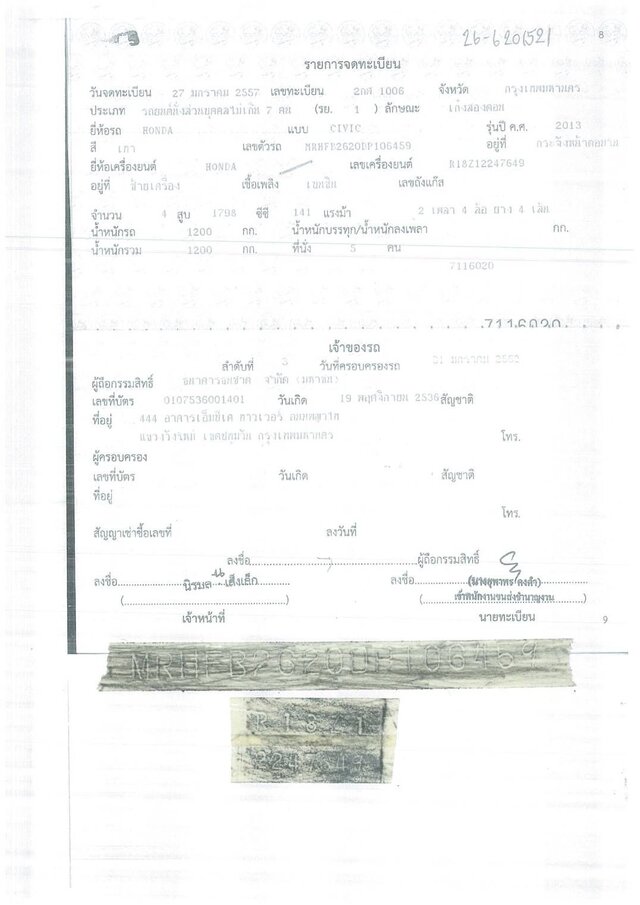 26-6201521 8
รายการจดทะเบียน
วันจดทะเบียน 27 มกราคม 2557 เลขทะเบียน 2กศ 1006 จังหวัด กรุงเทพมหานคร
ประเภท รถยนต์นั่งส่วนบุคคลไม่เกิน 7 คน (รย. 1 ) ลักษณะ เก๋งสองตอน
ยี่ห้อรถ HONDA แบบ CIVIC รุ่นปี ค.ศ. 2013
สี เทา เลขตัวรถ MRHFB2620DP106459 อยู่ที่
ยี่ห้อเครื่องยนต์ HONDA เลขเครื่องยนต์ R18Z12247649
อยู่ที่ ซ้ายเครื่อง เชื้อเพลิง เบนซิน เลขถังแก๊ส
จำนวน 4 สูบ 1798 ซีซี 141 แรงม้า 2 เพลา 4 ล้อ ยาง 4 เส้น
น้ำหนักรถ 1200 กก. น้ำหนักบรรทุก/น้ำหนักลงเพลา กก.
น้ำหนักรวม 1200 กก. ที่นั่ง 5 คน
7116020
7116020
เจ้าของรถ
ลำดับที่ 3 วันที่ครอบครองรถ
ผู้ถือกรรมสิทธิ์ ธนาคารธนชาต จำกัด (มหาชน)
เลขที่บัตร 0107536001401 วันเกิด 19 พฤศจิกายน 2536 สัญชาติ
ที่อยู่ 444 อาคารเอ็มบีเค ทาวเวอร์ ถนนพญาไท
แขวงวังใหม่ เขตปทุมวัน กรุงเทพมหานคร โทร.
ผู้ครอบครอง
เลขที่บัตร วันเกิด สัญชาติ
ที่อยู่
โทร.
สัญญาเช่าซื้อเลขที่ ลงวันที่
ลงชื่อ ผู้ถือกรรมสิทธิ์
ลงชื่อ นิรมล เส็งเล็ก ลงชื่อ
เจ้าพนักงานขนส่งชำนาญงาน
เจ้าหน้าที่ นายทะเบียน 9
MRHFB2620DP106459